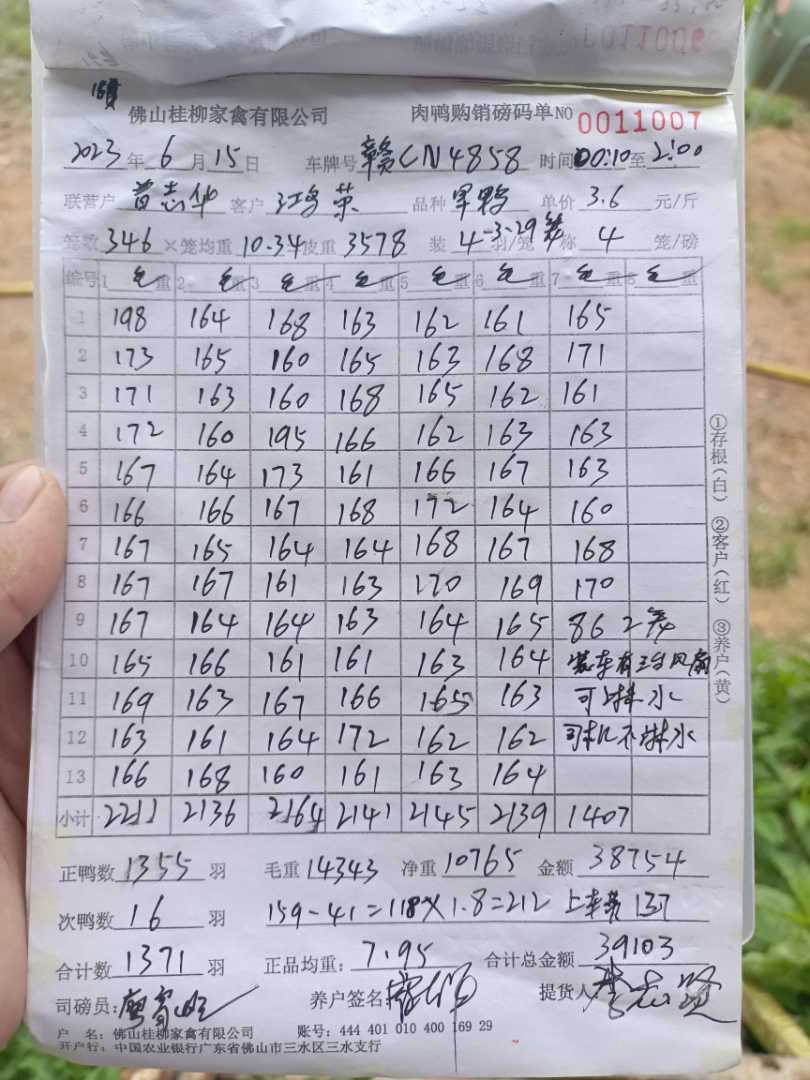 佛山桂柳家禽有限公司 肉鸭购销磅码单NO 0011007
2023年6月15日 车牌号赣CN4858 时间00:10至2:00
联营户 曾志华 客户 江鸿荣 品种 军鸭 单价 3.6 元/斤
笼数346×笼均重10.34皮重3578 装4-3-29笼羽/笼 称4笼/磅
编号 1毛重 2毛重 3毛重 4毛重 5毛重 6毛重 7毛重 8毛重
1 198 164 168 163 162 161 165
2 173 165 160 165 163 168 171
3 171 163 160 168 165 162 161
4 172 160 195 166 162 163 163
5 167 164 173 161 166 167 163
6 166 166 167 168 172 164 160
7 167 165 164 164 168 167 168
8 167 167 161 163 170 169 170
9 167 164 164 163 164 165 86 2笼
10 165 166 161 161 163 164 装车有三台风扇
11 169 163 167 166 165 163 可淋水
12 163 161 164 172 162 162 司机不淋水
13 166 168 160 161 163 164
小计 2211 2136 2164 2141 2145 2139 1407
正鸭数1355羽 毛重14343 净重10765 金额38754
次鸭数16羽 159-41=118×1.8=212 上车费137
合计数1371羽 正品均重:7.95 合计总金额39103
司磅员: 养户签名 提货人
户 名:佛山桂柳家禽有限公司 账号:444 401 010 400 169 29
开户行:中国农业银行广东省佛山市三水区三水支行
①存根(白) ②客户(红) ③养户(黄)